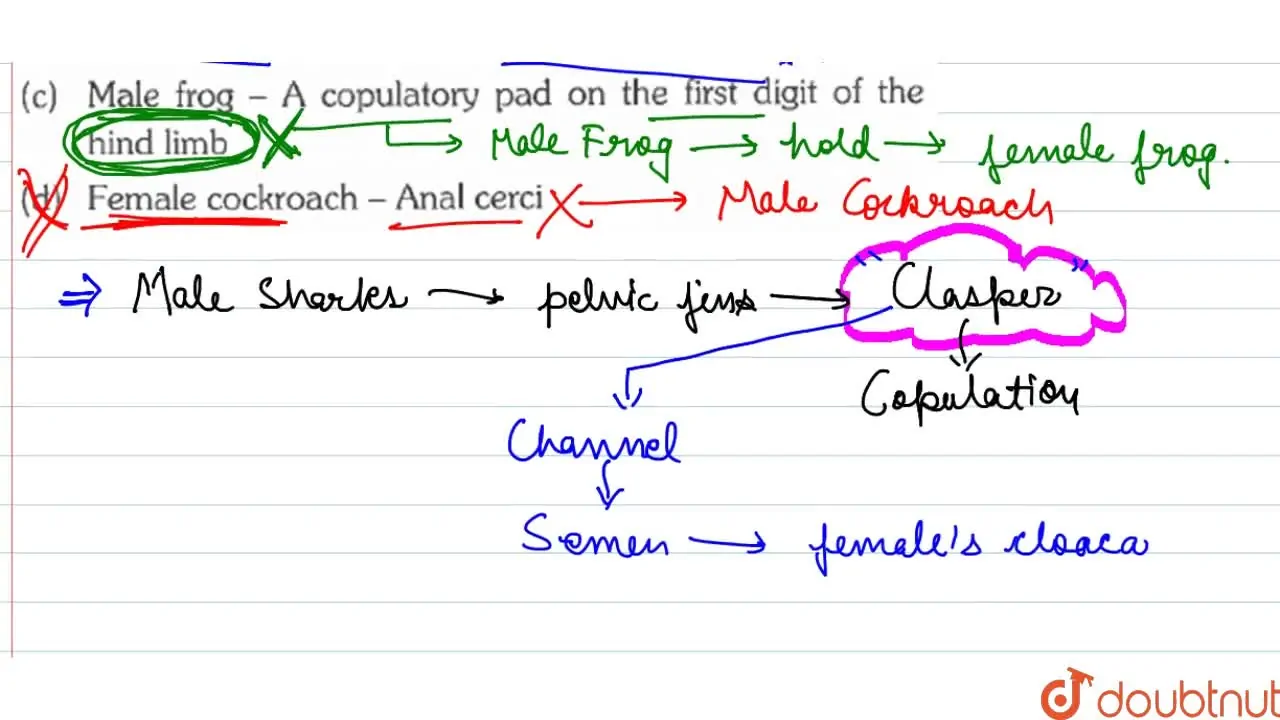 (c) Male frog – A copulatory pad on the first digit of the
hind limb X → Male Frog → hold → female frog.
(d) Female cockroach – Anal cerci X → Male Cockroach
⇒ Male Sharks → pelvic fins → "Clasper"
Copulation
Channel
Semen → female's cloaca
doubtnut